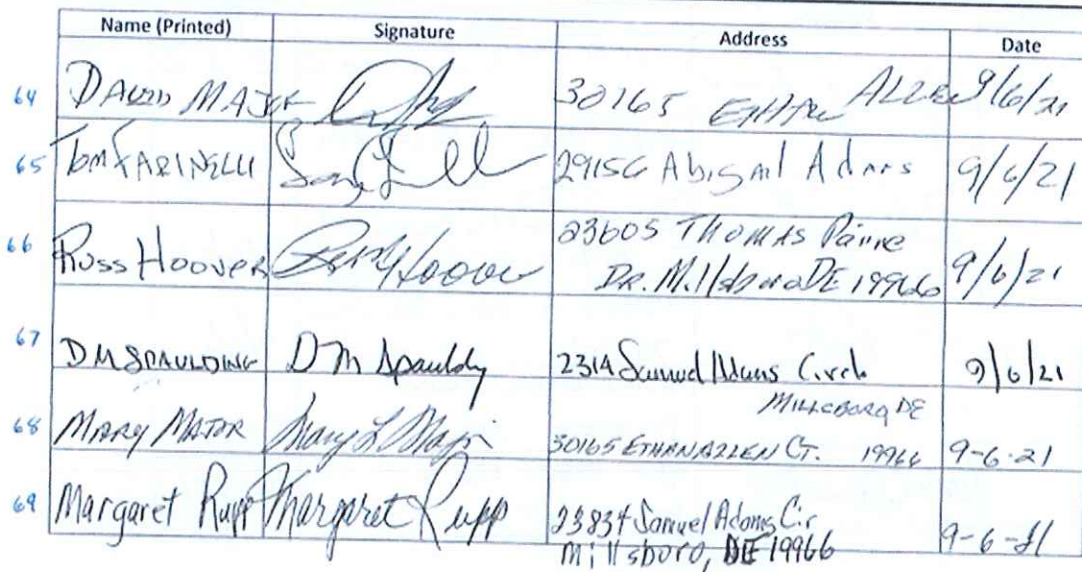 Name (Printed) Signature Address Date
64 DAVID MAJOR 30165 ETHAN ALLEN 9/6/21
65 Tom FARINELLI 29156 Abigail Adams 9/6/21
66 Russ Hoover Hoover 23605 THOMAS Paine
DR. Millsboro DE 19966 9/6/21
67 DM SPAULDING DM Spauldg 2314 Samuel Adams Circle 9/6/21
MILLSBORO DE
68 MARY MAJOR Mary L Major 30165 ETHAN ALLEN CT. 19966 9-6-21
69 Margaret Rupp Margaret Rupp 23834 Samuel Adams Cir
Millsboro, DE 19966 9-6-21